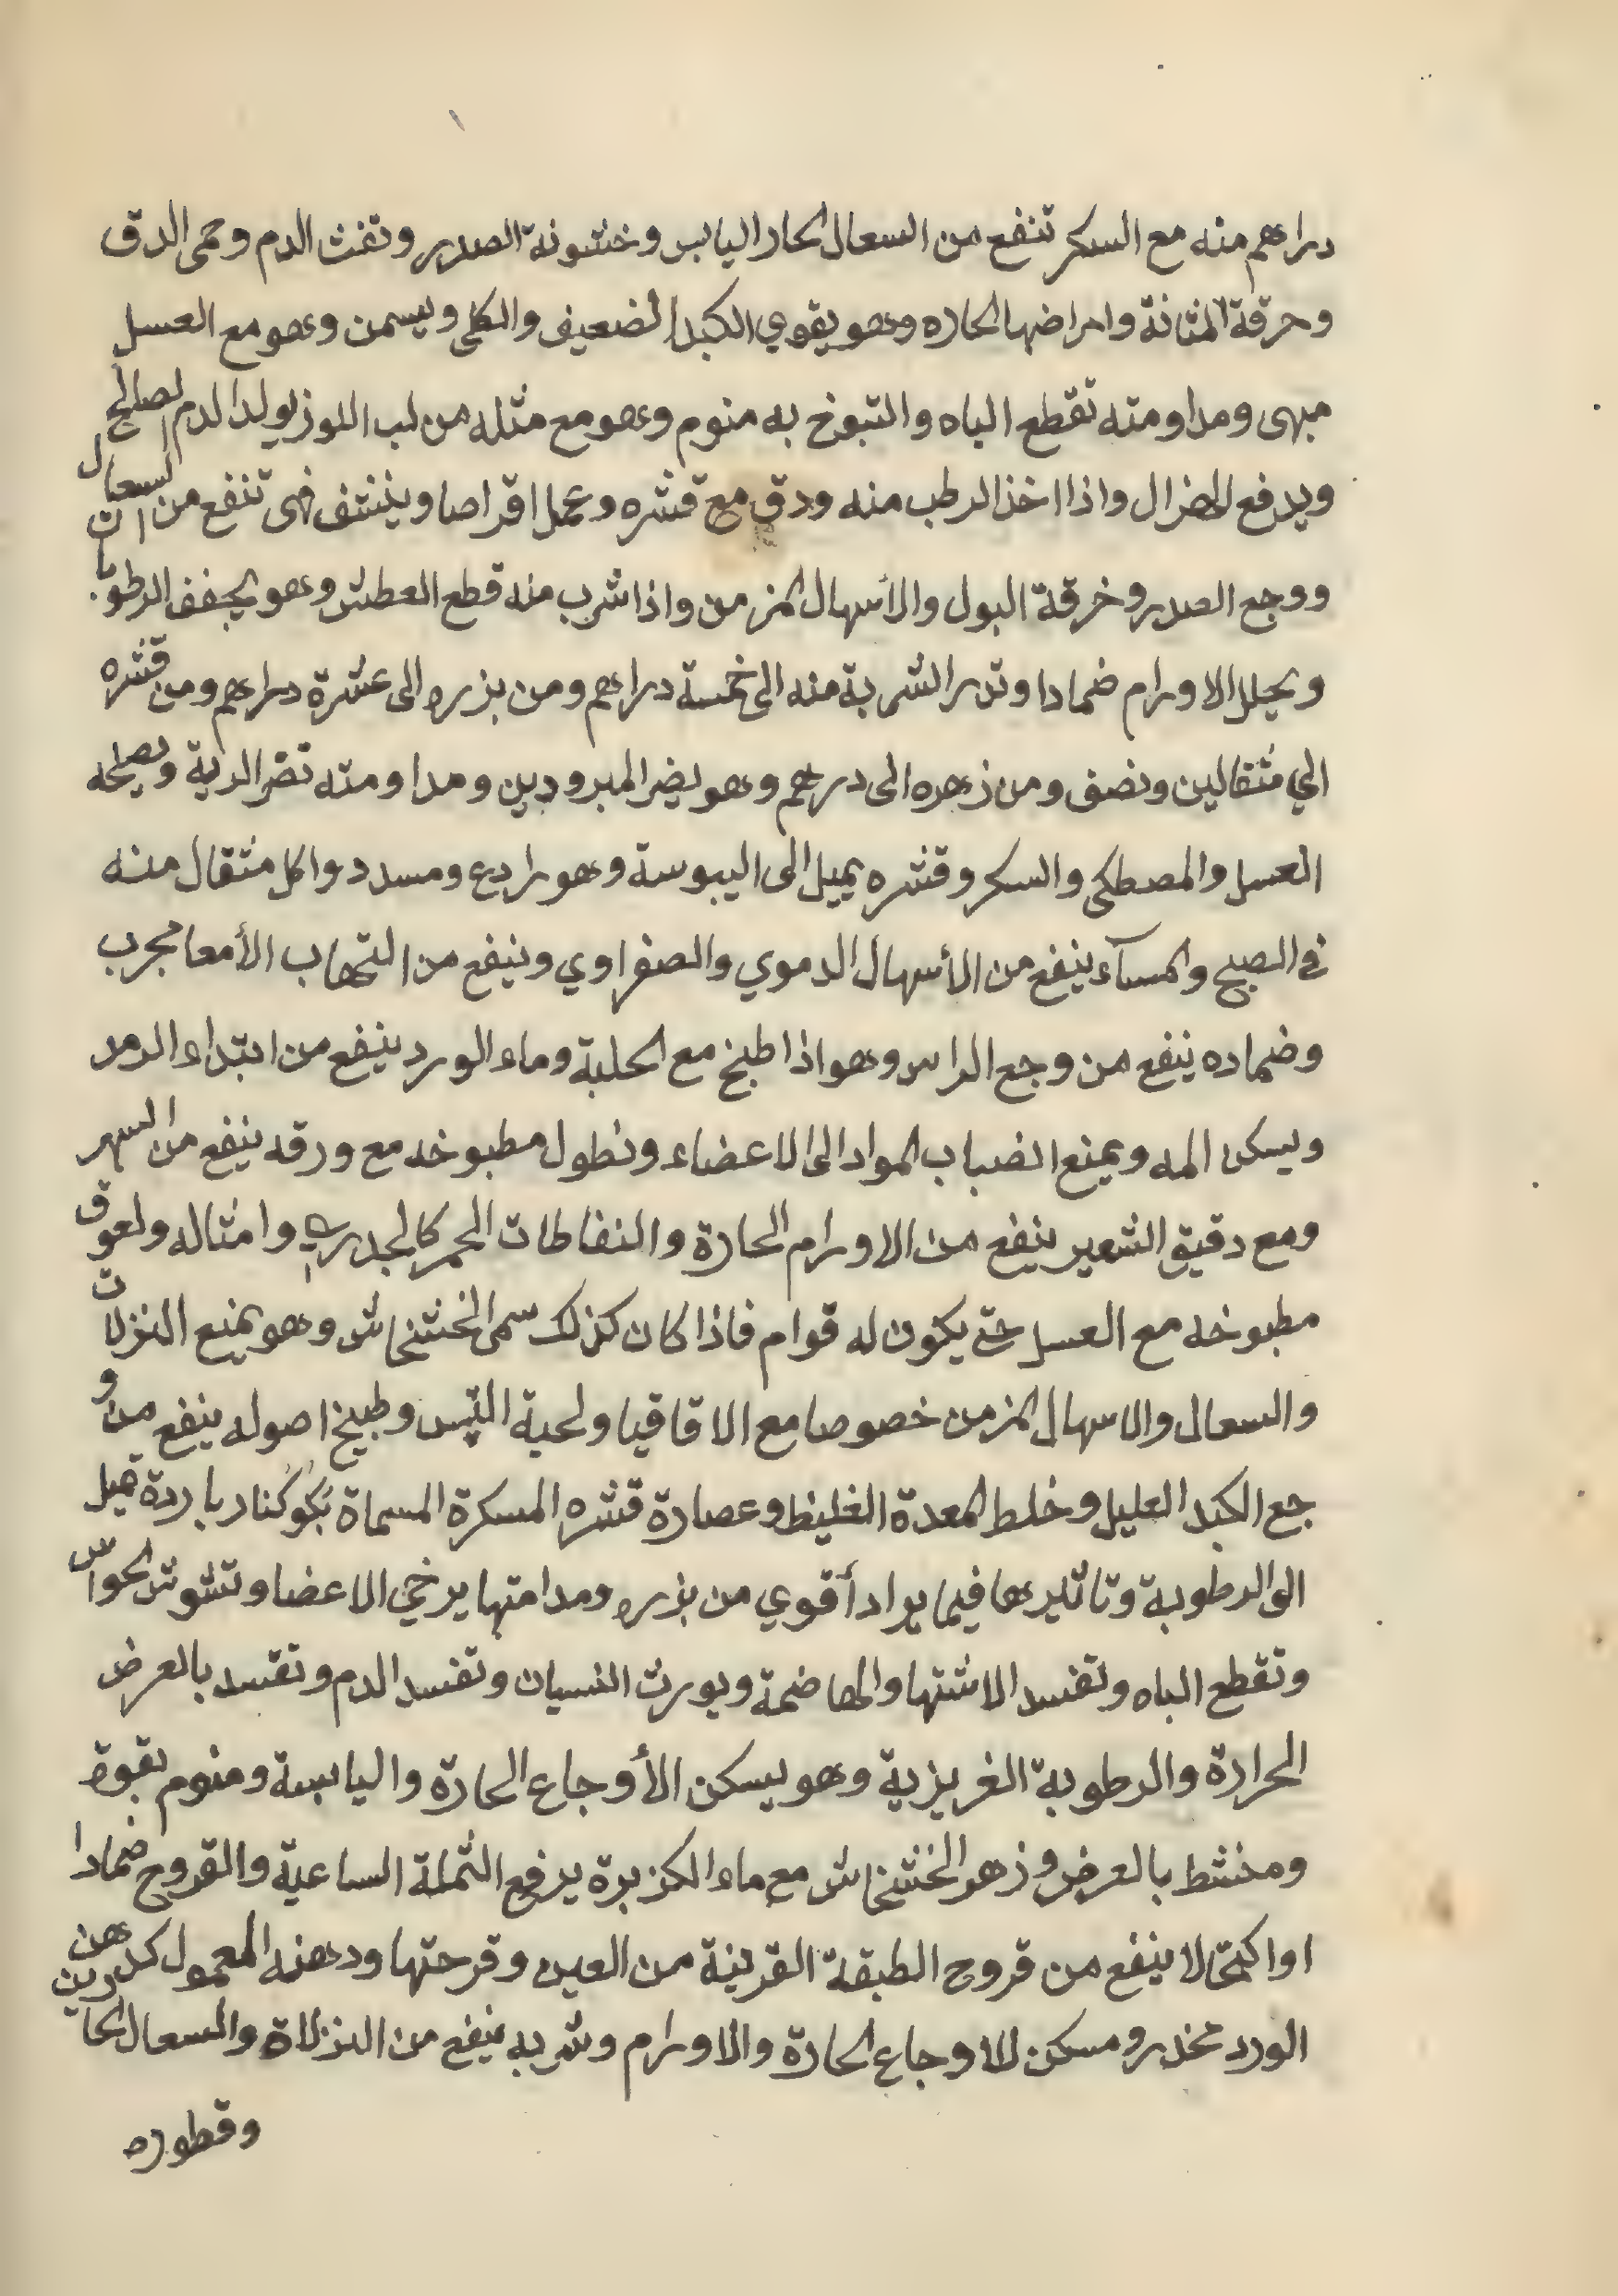 دراهم منه مع السكر تنفع من السعال الحار اليابس وخشونة الصدر ونفث الدم وحمى الدق
وحرقة المثانة وامراضها الحاره وهو يقوي الكبد الضعيف والكلى ويسمن وهو مع العسل
مبهى ومداومته تقطع الباه والتبوخ به منوم وهو مع مثله من لب اللوز يولد الدم الصالح
ويدفع الهزال واذا اخذ الرطب منه ودق مع قشره وعمل اقراصا وينشف فهى تنفع من السعال
ووجع الصدر وخرقة البول والأسهال المزمن واذا شرب منه قطع العطش وهو يجفف الرطوبات
ويحلل الاورام ضمادا وتدر الشربة منه الى خمسة دراهم ومن بزره الى عشرة دراهم ومن قشره
الي مثقالين ونصف ومن زهره الى درهم وهو يضر المبرودين ومداومته تضر الرية ويصلحه
العسل والمصطكى والسكر وقشره يميل الى اليبوسة وهو رادع ومسدد واكل مثقال منه
في الصبح والمسآء ينفع من الأسهال الدموي والصفراوي وينفع من التهاب الأمعا مجرب
وضماده ينفع من وجع الراس وهو اذا طبخ مع الحلبة وماء الورد ينفع من ابتداء الرمد
ويسكن المه ويمنع انضباب المواد الى الاعضاء ونطول مطبوخه مع ورقه ينفع من السهر
ومع دقيق الشعير ينفع من الاورام الحارة والنفاطات الحمر كالجدري وامثاله ولعوق
مطبوخه مع العسل حتى يكون له قوام فاذا كان كذلك سمى الخشخاش وهو يمنع النزلات
والسعال والاسهال المزمن خصوصا مع الاقاقيا ولحية التيس وطبيخ اصوله ينفع من و
جع الكبد العليل وخلط المعدة الغليظ وعصارة قشره المسكرة المسماة بكوكنار باردة تميل
الى الرطوبة وتاثيرها فيما يراد أقوي من بزره ومدامتها يرخي الاعضا وتشوش الحواس
وتقطع الباه وتفسد الاشتها والهاضمة ويورث النسيان وتفسد الدم وتفسد بالعرض
الحرارة والرطوبة الغريزية وهو يسكن الأوجاع الحارة واليابسة ومنوم بقوة
ومنشط بالعرض وزهر الخشخاش مع ماء الكزبرة يرفع النملة الساعية والقروح ضمادا
او اكتحالا ينفع من قروح الطبقة القرنية من العين وقرحتها ودهنه المعمول كدهن
الورد مخدر ومسكن للاوجاع الحارة والاورام وشربه ينفع من النزلاة والسعال الحارين
وقطوره